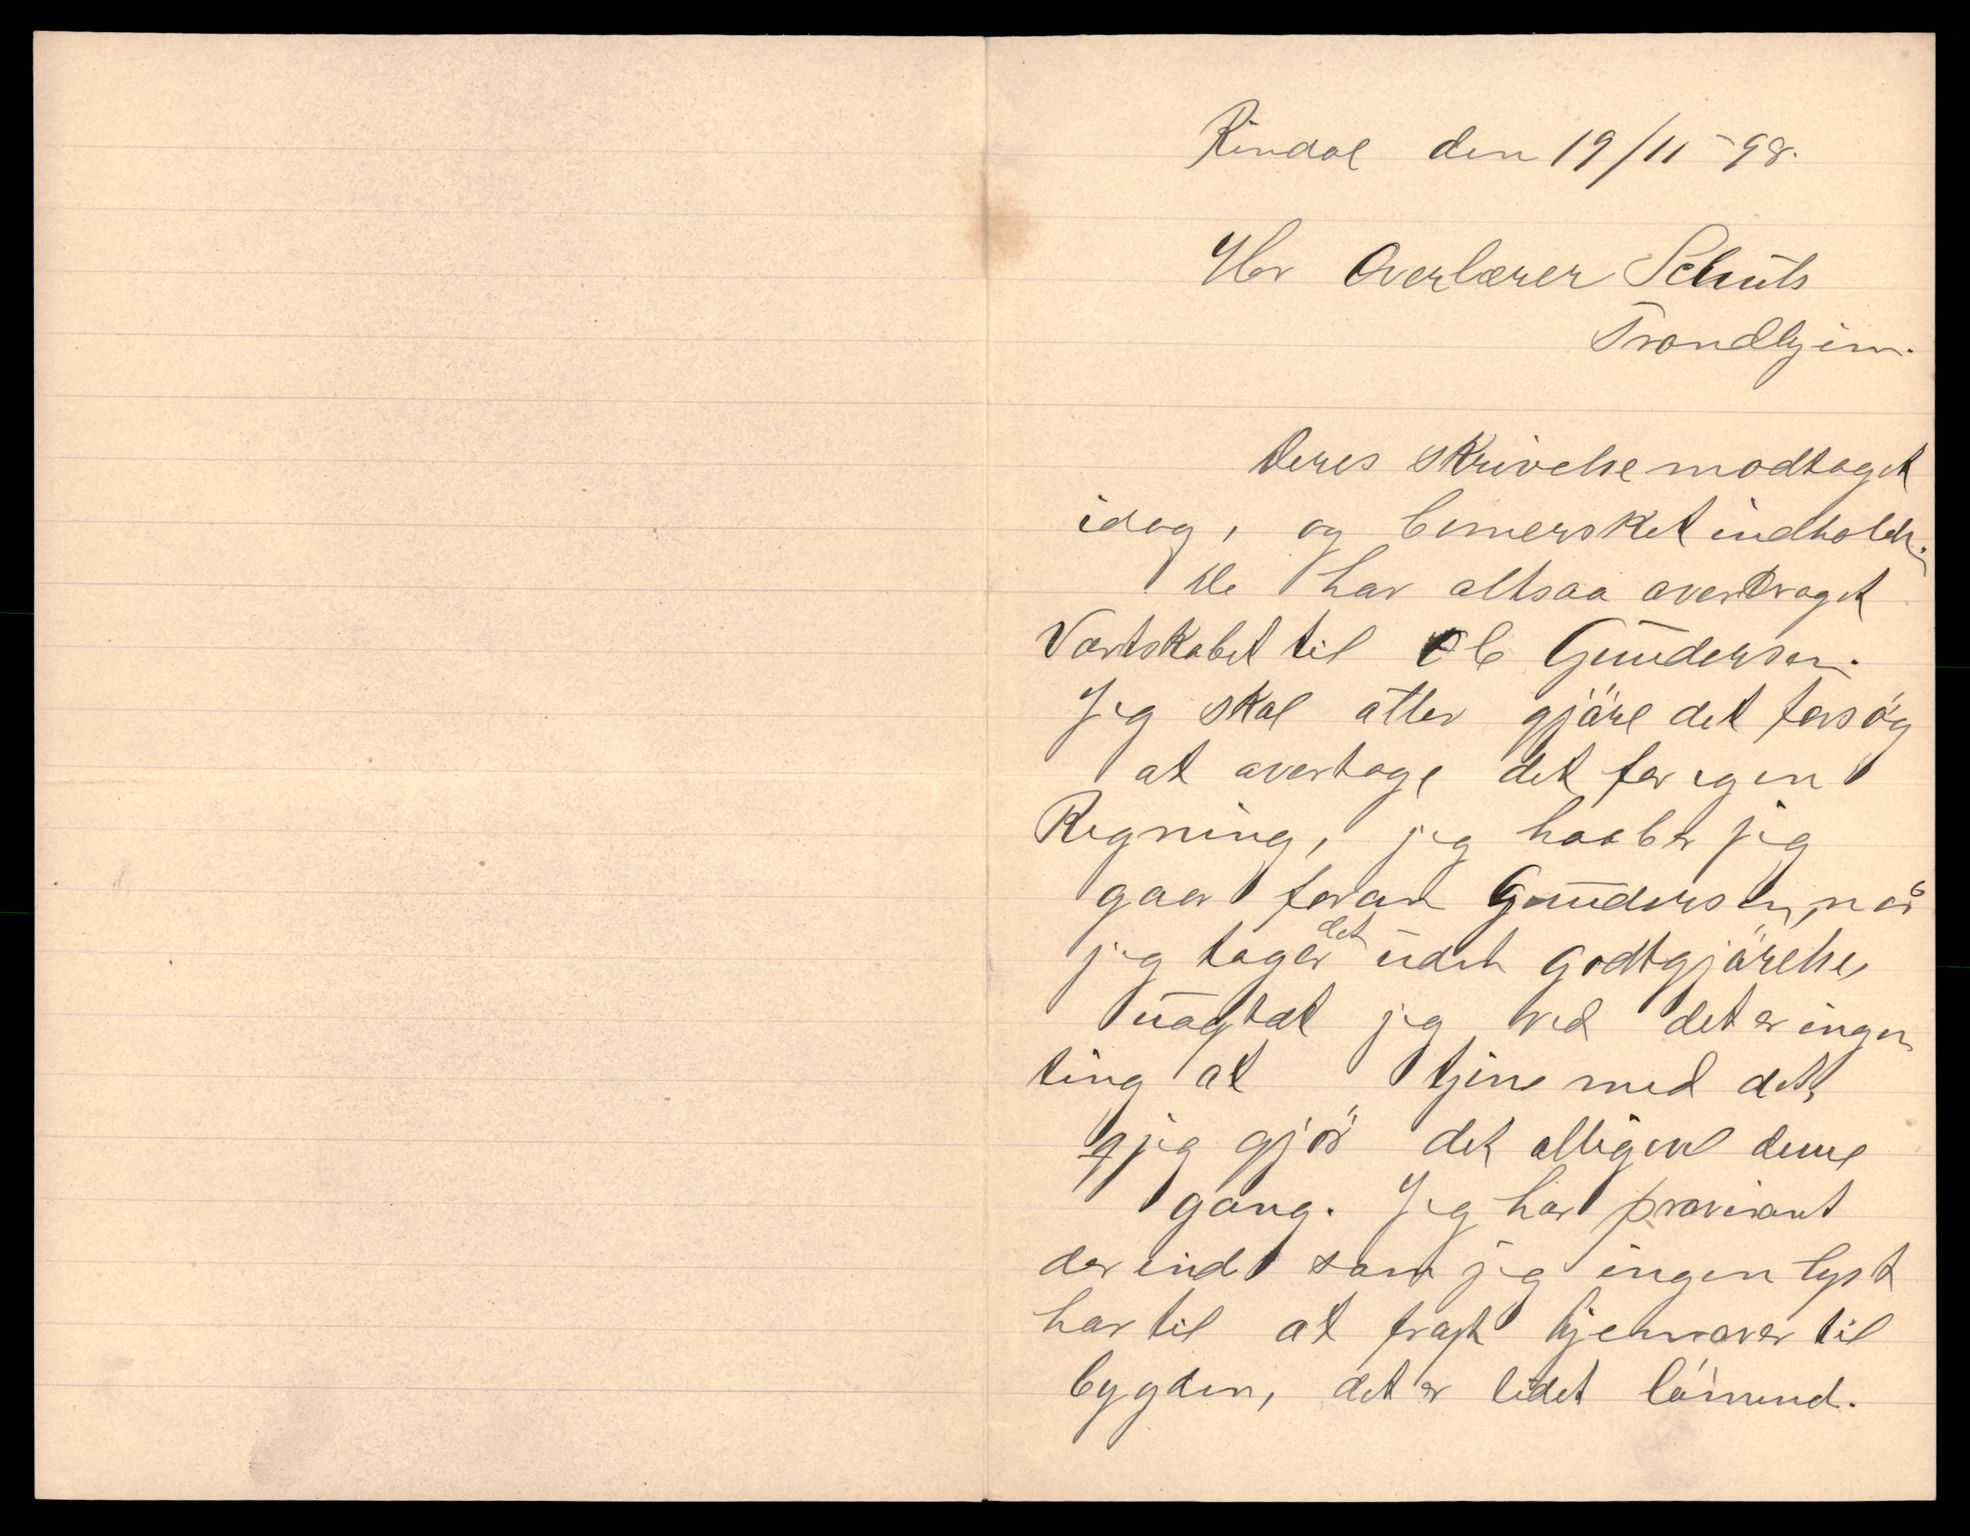 Rindal den 19/11 -98.
Hr Overlærer Schults
Trondhjem.
Deres skrivelse modtaget
idag, og bemersket indholdet.
De har altsaa overdraget
Vertskabet til Ole Gundersen.
Jeg skal atter gjöre det forsög
at overtage det for egen
Regning, jeg haaber jeg
gaar foran Gundersen, når
jeg tager det uden godtgjörelse,
uagtet jeg ved det er ingen
ting at tjene med det,
jeg gjör det alligevel denne
gang. Jeg har proviant
der inde som jeg ingen lyst
har til at fragte hjemover til
bygden, det er lidet lönnend.